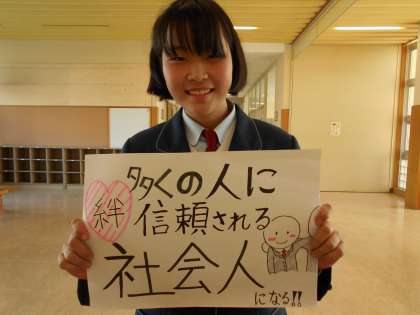 多くの人に
絆 信頼される
社会人
になる!!